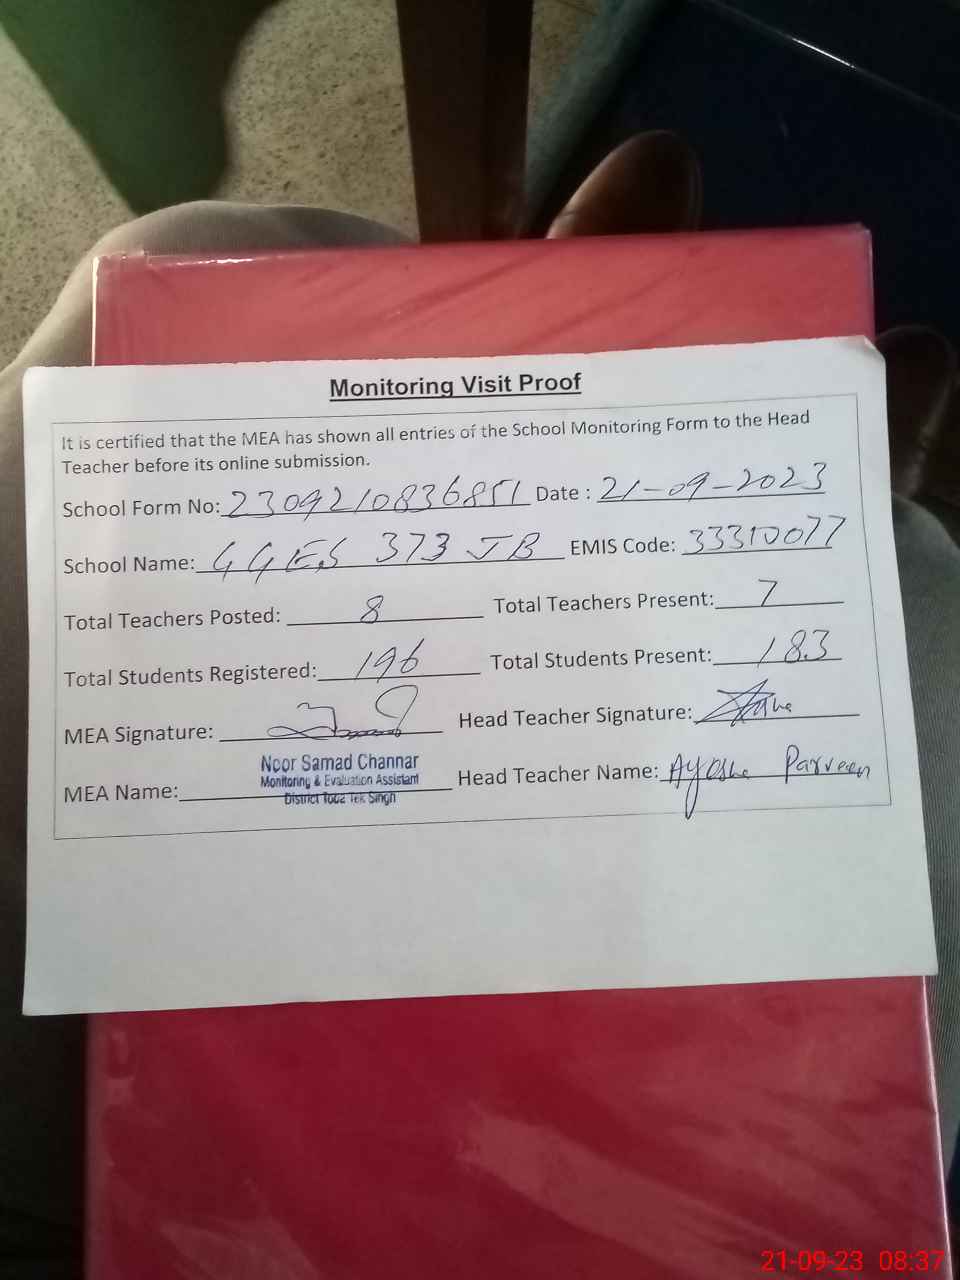 Monitoring Visit Proof
It is certified that the MEA has shown all entries of the School Monitoring Form to the Head
Teacher before its online submission.
School Form No: 2309210836851 Date : 21-09-2023
School Name: GGES 373 JB EMIS Code: 33310077
Total Teachers Posted: 8 Total Teachers Present: 7
Total Students Registered: 196 Total Students Present: 183
MEA Signature: Head Teacher Signature:
Noor Samad Channar
Monitoring & Evaluation Assistant
District Toba Tek Singh
MEA Name: Head Teacher Name: Ayesha Parveen
21-09-23 08:37